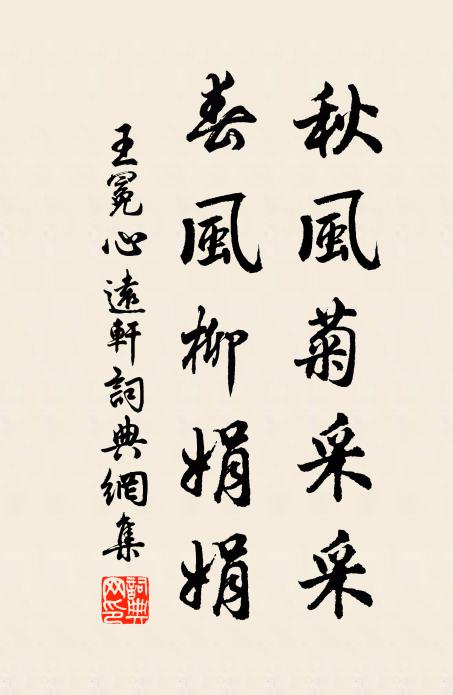 秋風菊采采
春風柳娟娟
王冕心遠軒詞典網集
詞典网印